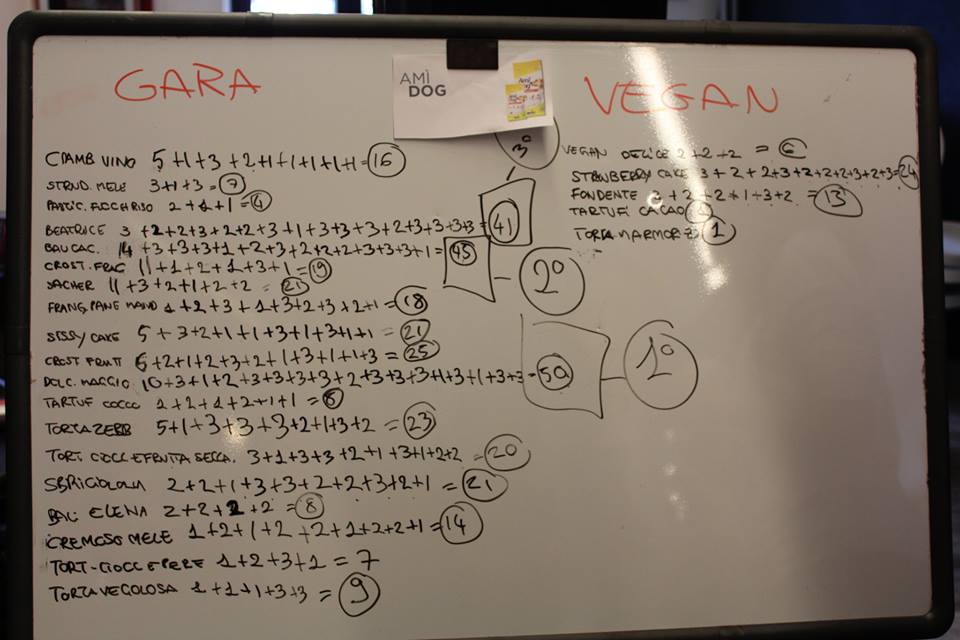 GARA
AMÌ
DOG
VEGAN
CIAMB VINO 5+1+3+2+1+1+1+1+1=16
STRUD. MELE 3+1+3=7
RISO 2+1+1=4
BEATRICE 3+2+2+3+2+2+3+1+3+3+3+2+3+3+3+3=41
BAU CAC. 14+3+3+3+1+2+3+2+2+2+3+3+3+1=45
CROST. FRAG 11+1+2+1+3+1=19
SACHER 11+3+2+1+2+2=21
FRANG. PANE 1+2+3+1+3+2+3+2+1=18
SISSY CAKE 5+3+2+1+1+3+1+3+1+1=21
CROST FRUTT 6+2+1+2+3+2+1+3+1+1+3=25
DOLC. MAGGIO 10+3+1+2+3+3+3+3+2+3+3+3+1+3+1+3+3=50
TARTUF COCCO 1+2+1+2+1+1=8
TORTA ZEBR 5+1+3+3+3+2+1+3+2=23
TORT. CIOCC E FRUTTA SECCA. 3+1+3+3+2+1+3+1+2+2=20
SBRICIOLATA 2+2+1+3+3+2+2+3+2+1=21
ELENA 2+2+2+2=8
CREMOSO MELE 1+2+1+2+2+1+2+2+1=14
TORT-CIOCC E PERE 1+2+3+1=7
TORTA VEGOLOSA 1+1+1+3+3=9
3°
2°
1°
VEGAN DELICE 2+2+2=6
STRAWBERRY CAKE 3+2+2+3+2+2+2+3+2+3=24
FONDENTE 3+2+2+1+3+2=13
TARTUFI CACAO
TORTA MARMORIZ 1